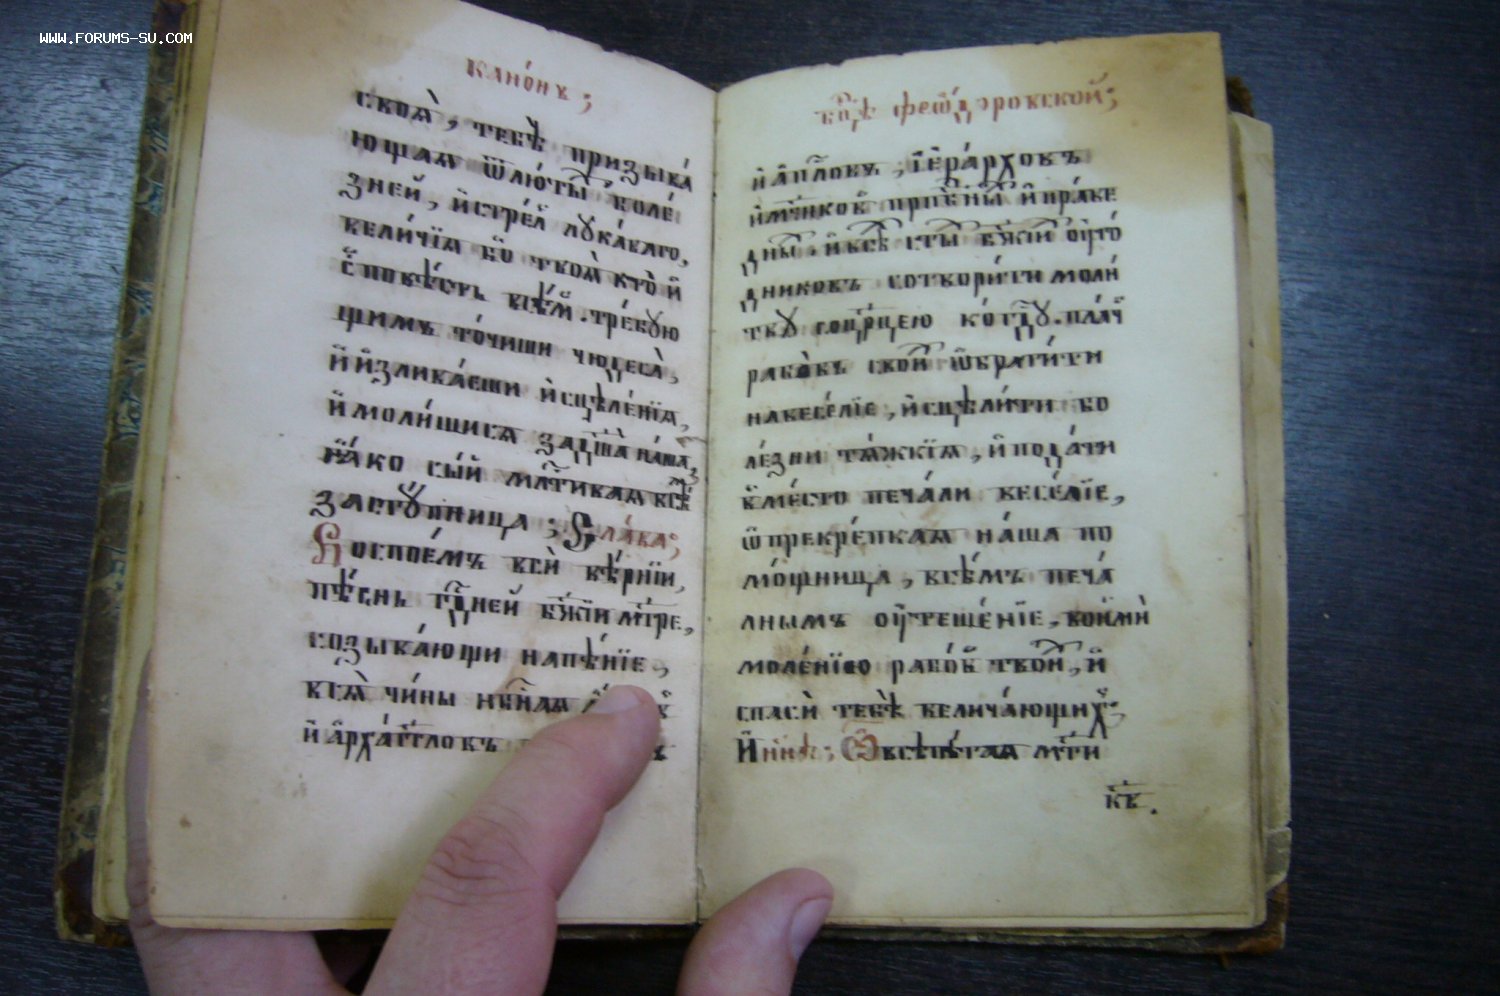 WWW.FORUMS-SU.COM
Канонъ;
своѧ̀, тебѐ призыва́
ющаѧ ѿлю́ты бꙋлѣ́
зней, и҆стрѣ́л лꙋка́ваго,
вели́чїѧ бо̀ твоѧ̀ кто̀ и҆
сповѣ́сть всѣ́м. тре́бꙋю
щимъ то́чиши чюдеса̀,
и҆ и҆злива́еши и҆сцѣле́нїѧ,
и҆ моли́шисѧ за дш҃а на́ша,
ꙗ҆́ко сы́й мл҃тиваѧ всѣ́
застꙋ́пница; Сла́ва;
Воспое́мъ всѝ вѣ́рнїи,
пѣ́снь гдⷭ҇ней бж҃їи мт҃ре,
созыва́ющи на пѣ́нїе,
всѧ̀ чи́ны нбⷭ҇наѧ
и҆ а҆рха́гг҃ловъ
бцⷣе феѡдоровской;
и҆ а҆пⷭ҇ловъ, і҆ера́рховъ
и҆ мчн҃ковъ прпⷣбны и҆ пра́ве
дны, и҆ всѣ сты бж҃їи ᲂу҆го́
дниковъ сотвори́ти моли́
твꙋ гоцр҃цею ко гдⷭ҇ꙋ. пла́ч
рабо́въ свои ѡ҆брати́ти
на весе́лїе, и҆сцѣли́ти бо
лѣ́зни тѧ́жкїѧ, и҆ пода́ти
вмѣ́сто печа́ли весе́лїе,
ѽ прекрѣ́пкаѧ на́ша по
мо́щница, всѣ́мъ печа́
лнымъ ᲂу҆теше́нїе, вонмѝ
моле́нїю рабо́в твои, и҆
спасѝ тебѐ велича́ющих;
И҆ ны́нѣ; Ѽ всепѣ́таѧ мт҃и
кв҃.